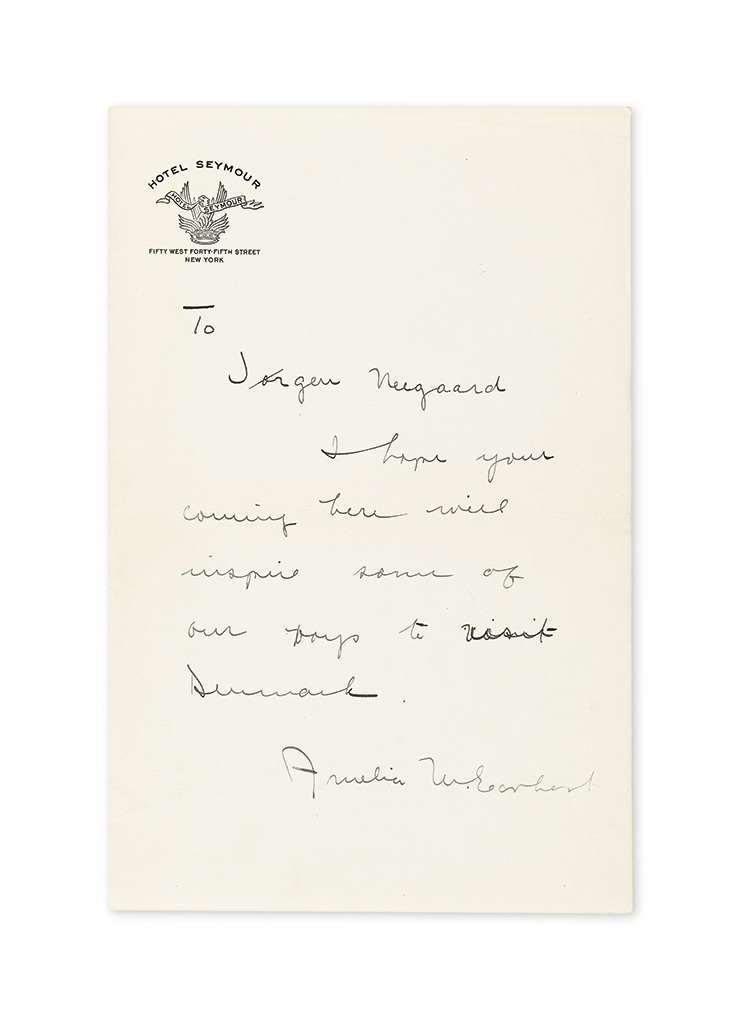 HOTEL SEYMOUR
HOTEL SEYMOUR
FIFTY WEST FORTY-FIFTH STREET
NEW YORK
To
Jørgen Neegaard
I hope your
coming here will
inspire some of
our boys to visit
Denmark.
Amelia M. Earhart